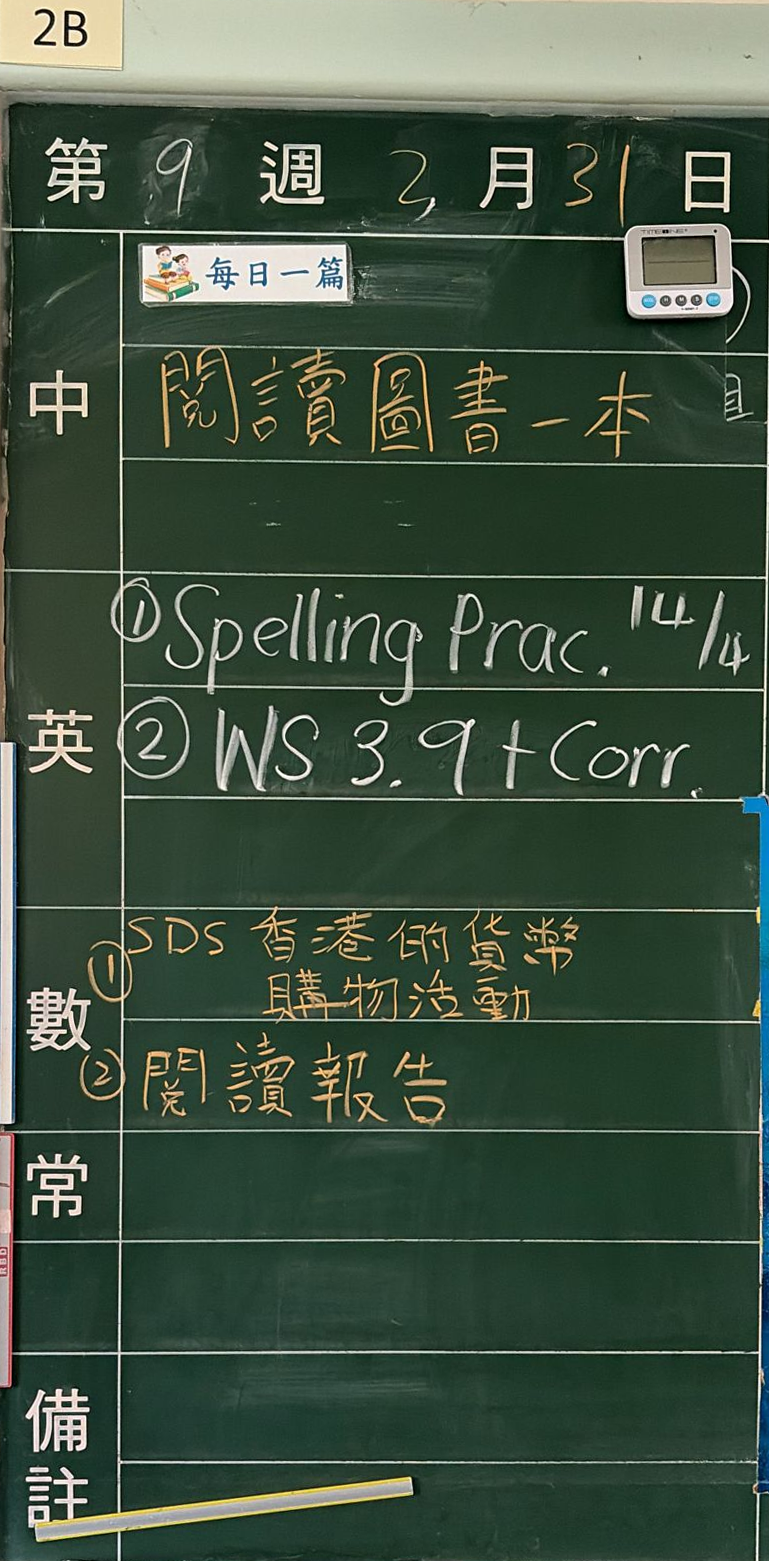 2B
第 9 週 2 月 31 日
每日一篇
中
閱讀圖書一本
英
① Spelling Prac. 14/4
② WS 3.9 + Corr.
數
① SDS 香港的貨幣
購物活動
② 閱讀報告
常
備註